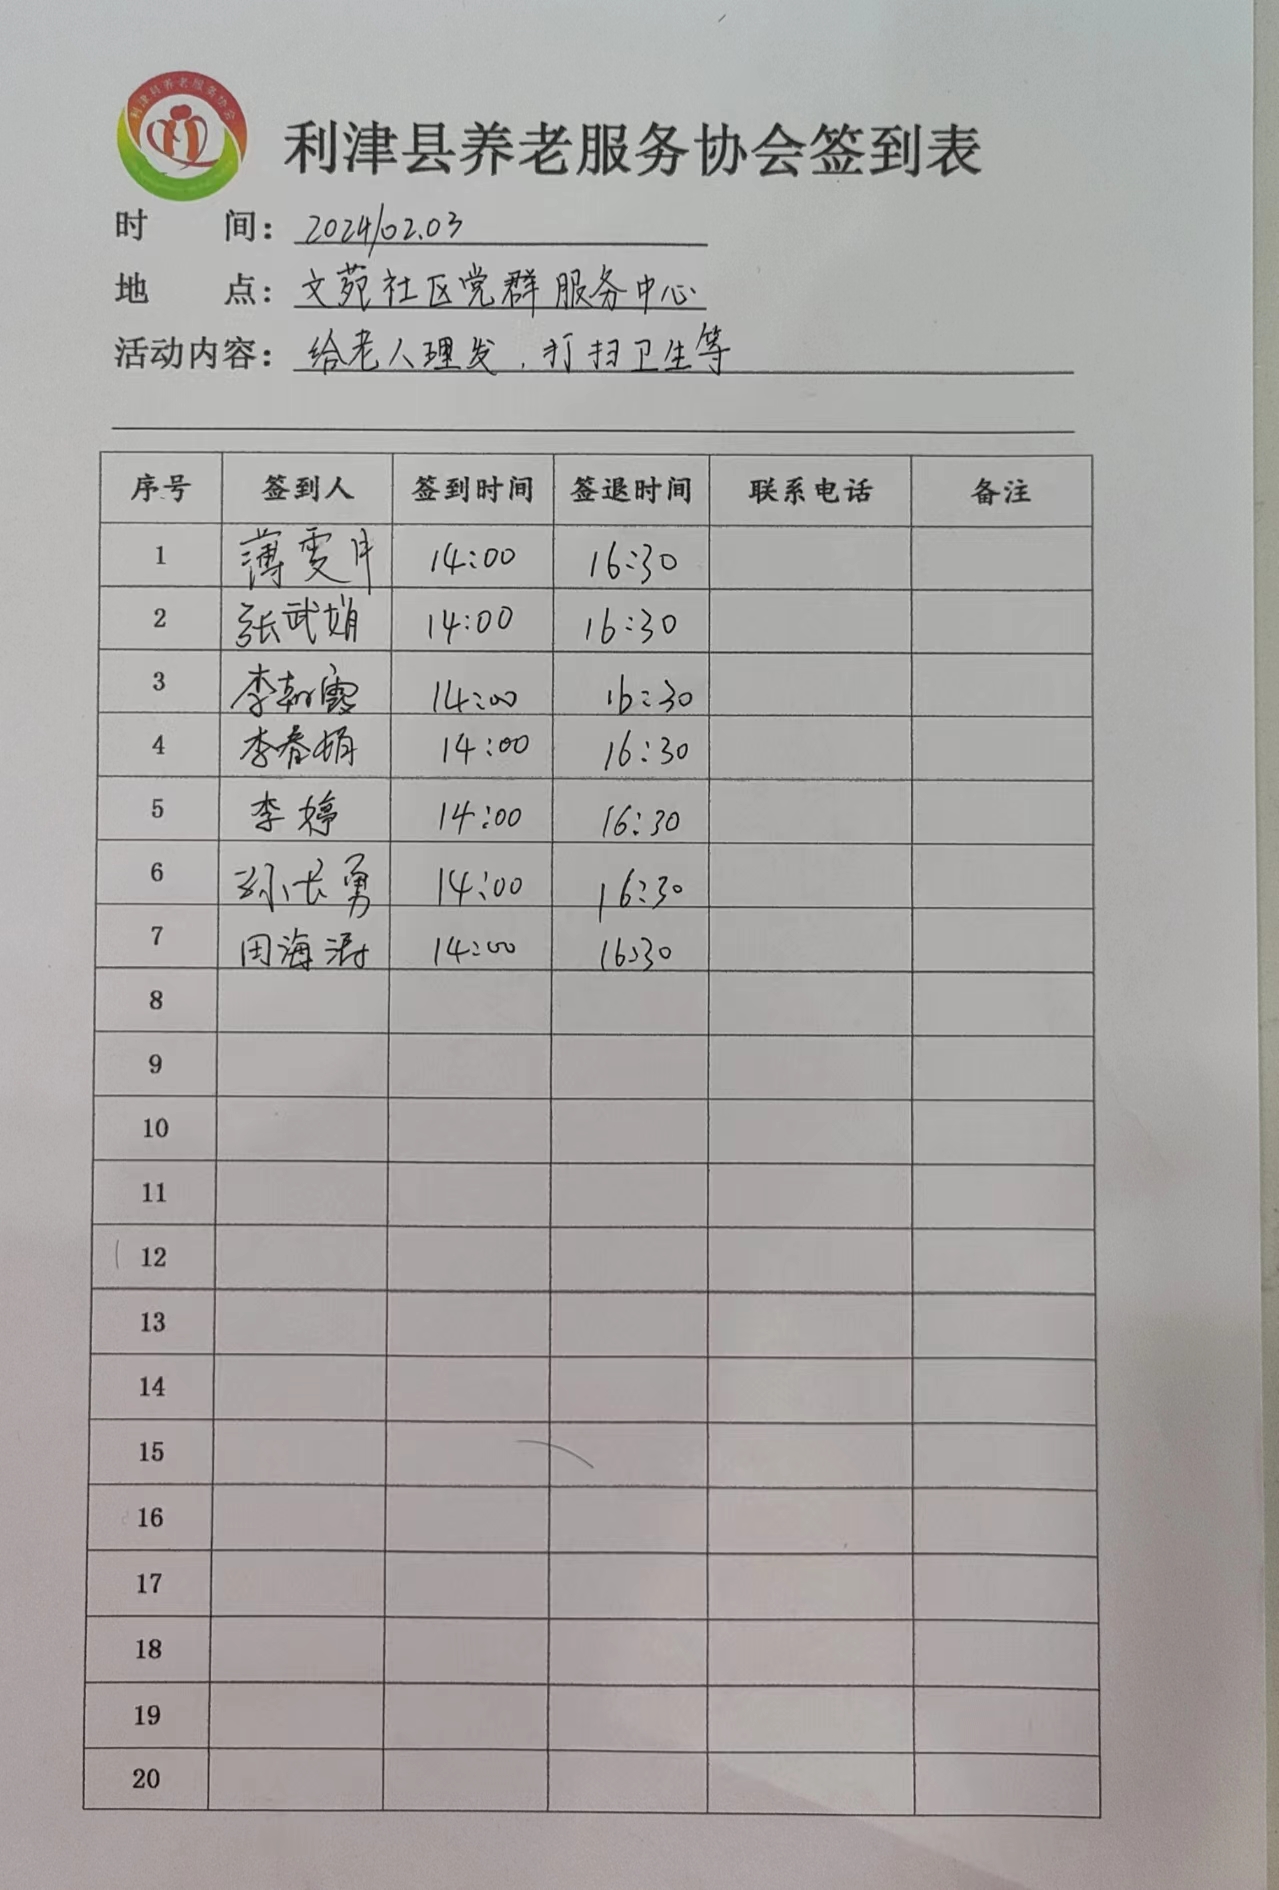 利津县养老服务协会
利津县养老服务协会签到表
时 间：2024/02.03
地 点：文苑社区党群服务中心
活动内容：给老人理发，打扫卫生等
序号 签到人 签到时间 签退时间 联系电话 备注
1 薄雯月 14:00 16:30
2 张武娟 14:00 16:30
3 李朝霞 14:00 16:30
4 李春娟 14:00 16:30
5 李婷 14:00 16:30
6 孙长勇 14:00 16:30
7 田海涛 14:00 16:30
8
9
10
11
12
13
14
15
16
17
18
19
20